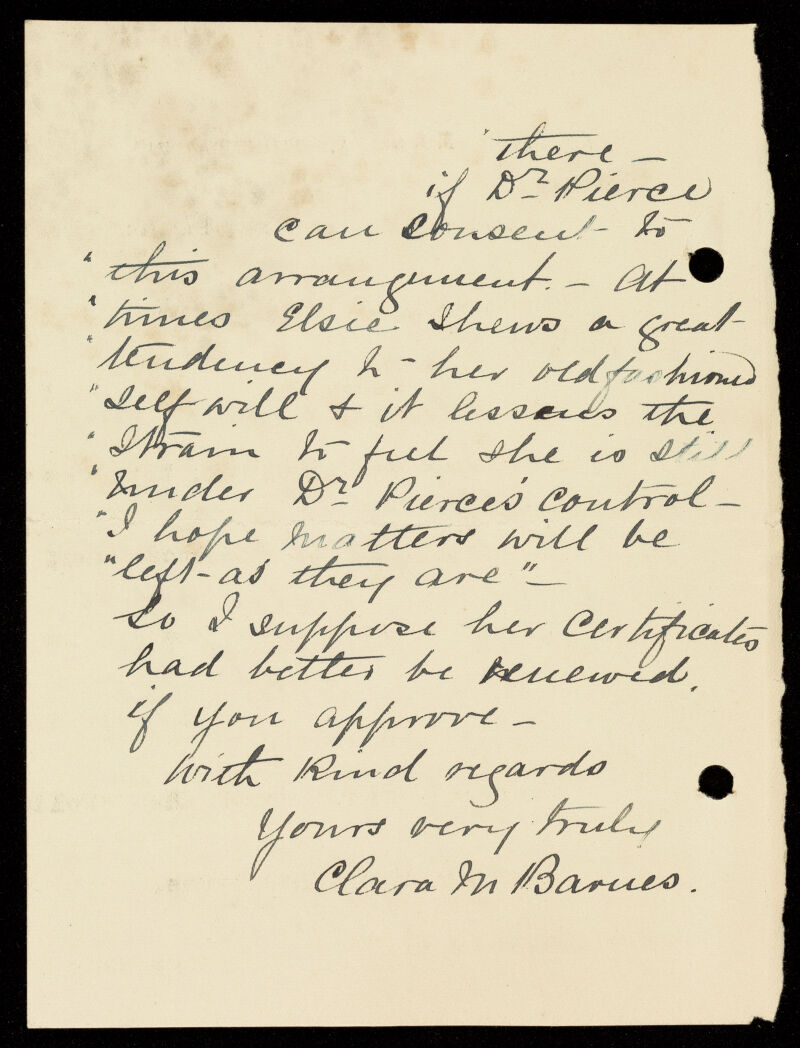 "there —
if Dr. Pierce
can consent to
"this arrangement. — At
"times Elsie shews a great
"tendency to her old fashioned
"self will & it lessens the
"strain to feel she is still
"under Dr. Pierce's control —
"I hope matters will be
"left as they are" —
So I suppose her certificates
had better be renewed,
if you approve —
With kind regards
Yours very truly
Clara M Barnes.